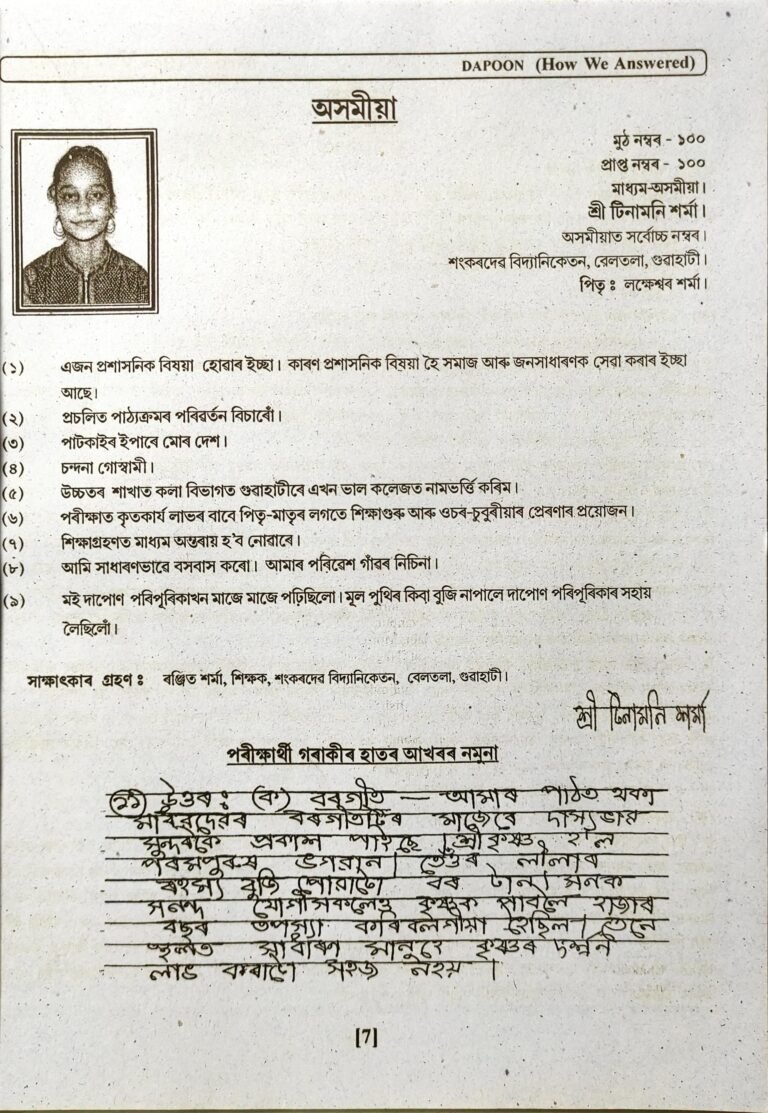 DAPOON (How We Answered)
অসমীয়া
মুঠ নম্বৰ - ১০০
প্ৰাপ্ত নম্বৰ - ১০০
মাধ্যম-অসমীয়া।
শ্ৰী টিনামনি শৰ্মা।
অসমীয়াত সৰ্বোচ্চ নম্বৰ।
শংকৰদেৱ বিদ্যানিকেতন, বেলতলা, গুৱাহাটী।
পিতৃ ঃ লক্ষেশ্বৰ শৰ্মা।
(১) এজন প্ৰশাসনিক বিষয়া হোৱাৰ ইচ্ছা। কাৰণ প্ৰশাসনিক বিষয়া হৈ সমাজ আৰু জনসাধাৰণক সেৱা কৰাৰ ইচ্ছা
আছে।
(২) প্ৰচলিত পাঠ্যক্ৰমৰ পৰিৱৰ্তন বিচাৰোঁ।
(৩) পাটকাইৰ ইপাৰে মোৰ দেশ।
(৪) চন্দনা গোস্বামী।
(৫) উচ্চতৰ শাখাত কলা বিভাগত গুৱাহাটীৰে এখন ভাল কলেজত নামভৰ্ত্তি কৰিম।
(৬) পৰীক্ষাত কৃতকাৰ্য লাভৰ বাবে পিতৃ-মাতৃৰ লগতে শিক্ষাগুৰু আৰু ওচৰ-চুবুৰীয়াৰ প্ৰেৰণাৰ প্ৰয়োজন।
(৭) শিক্ষাগ্ৰহণত মাধ্যম অন্তৰায় হ'ব নোৱাৰে।
(৮) আমি সাধাৰণভাৱে বসবাস কৰো। আমাৰ পৰিৱেশ গাঁৱৰ নিচিনা।
(৯) মই দাপোণ পৰিপূৰিকাখন মাজে মাজে পঢ়িছিলো। মূল পুথিৰ কিবা বুজি নাপালে দাপোণ পৰিপূৰিকাৰ সহায়
লৈছিলোঁ।
সাক্ষাৎকাৰ গ্ৰহণ ঃ ৰঞ্জিত শৰ্মা, শিক্ষক, শংকৰদেৱ বিদ্যানিকেতন, বেলতলা, গুৱাহাটী।
শ্ৰী টিনামনি শৰ্মা
পৰীক্ষাৰ্থী গৰাকীৰ হাতৰ আখৰৰ নমুনা
উত্তৰ : (ক) বৰগীত — আমাৰ পাঠত থকা
মাধৱদেৱৰ বৰগীতটিৰ মাজেৰে দাস্যভাৱ
সুন্দৰকৈ প্ৰকাশ পাইছে। শ্ৰীকৃষ্ণ হ'ল
পৰমপুৰুষ ভগৱান। তেওঁৰ লীলাৰ
ৰহস্য বুজি পোৱাটো বৰ টান। সনক
সনন্দ যোগীসকলেও কৃষ্ণক পাবলৈ হাজাৰ
বছৰ তপস্যা কৰিবলগীয়া হৈছিল। তেনে
স্থলত সাধাৰণ মানুহে কৃষ্ণৰ দৰ্শন
লাভ কৰাটো সহজ নহয়।
[7]